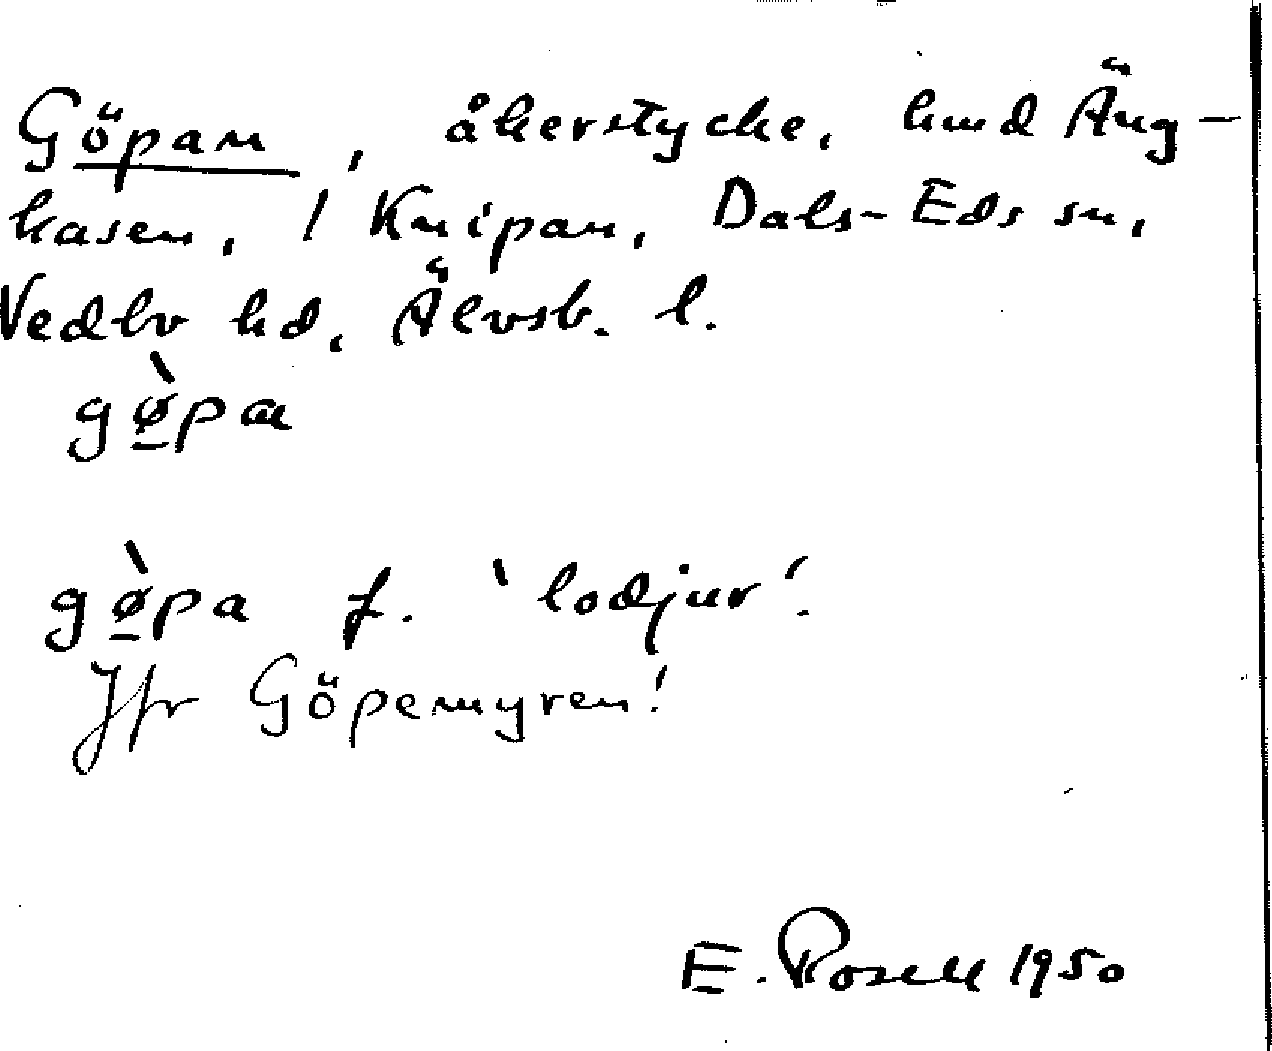 Göpan, åkerstycke, hmd Äng-
kasen, 1 Knipan, Dals-Eds sn,
Vedbo hd, Älvsb. l.
gø̀pa
gø̀pa f. 'lodjur'.
Jfr Göpemyren!
E. Rosell 1950